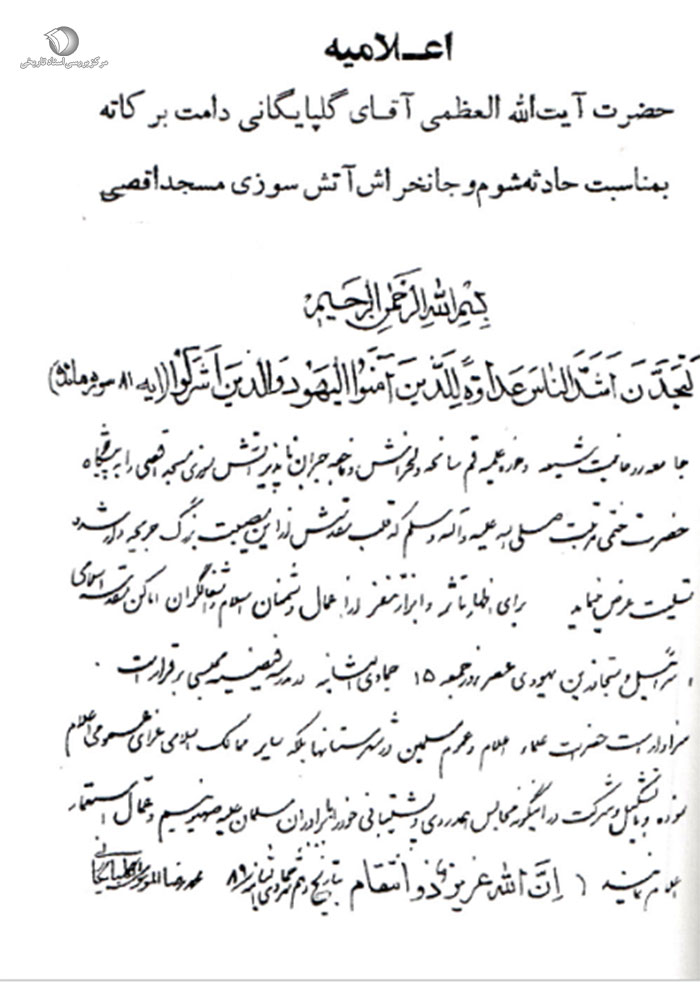 مرکز بررسی اسناد تاریخی
اعـــلامیه
حضرت آیت‌الله العظمی آقــای گلپایگانی دامت برکاته
بمناسبت حادثه شوم و جانخراش آتش سوزی مسجد اقصی
بسم الله الرحمن الرحیم
لتجدن اشد الناس عداوة للذین آمنوا الیهود والذین اشرکوا (آیه ۸۱ سوره مائده)
جامعه روحانیت شیعه و حوزه علمیه قم سانحه دلخراش و فاجعه جبران ناپذیر آتش سوزی مسجد اقصی را به پیشگاه
حضرت ختمی مرتبت صلی الله علیه و آله و سلم که قلب مقدسش از این مصیبت بزرگ جریحه دار شده
تسلیت عرض مینماید برای اظهار تأثر و ابراز تنفر از اعمال دشمنان اسلام و اشغالگران اماکن مقدسه اسلامی
اسرائیل و متجاوزین یهودی عصر روز جمعه ۱۵ جمادی الثانیه در مدرسه فیضیه مجلسی برقرار است .
سزاوار است حضرات علماء اعلام و عموم مسلمین در شهرستانها بلکه سایر ممالک اسلامی عزای عمومی اعلام
نموده و با تشکیل و شرکت در اینگونه مجالس همدردی و پشتیبانی خود را با برادران مسلمان علیه صهیونیسم و عمال استعمار
اعلام نمایند ان الله عزیز ذو انتقام بتاریخ دهم جمادی الثانیه ۸۹ محمدرضا الموسوی الگلپایگانی